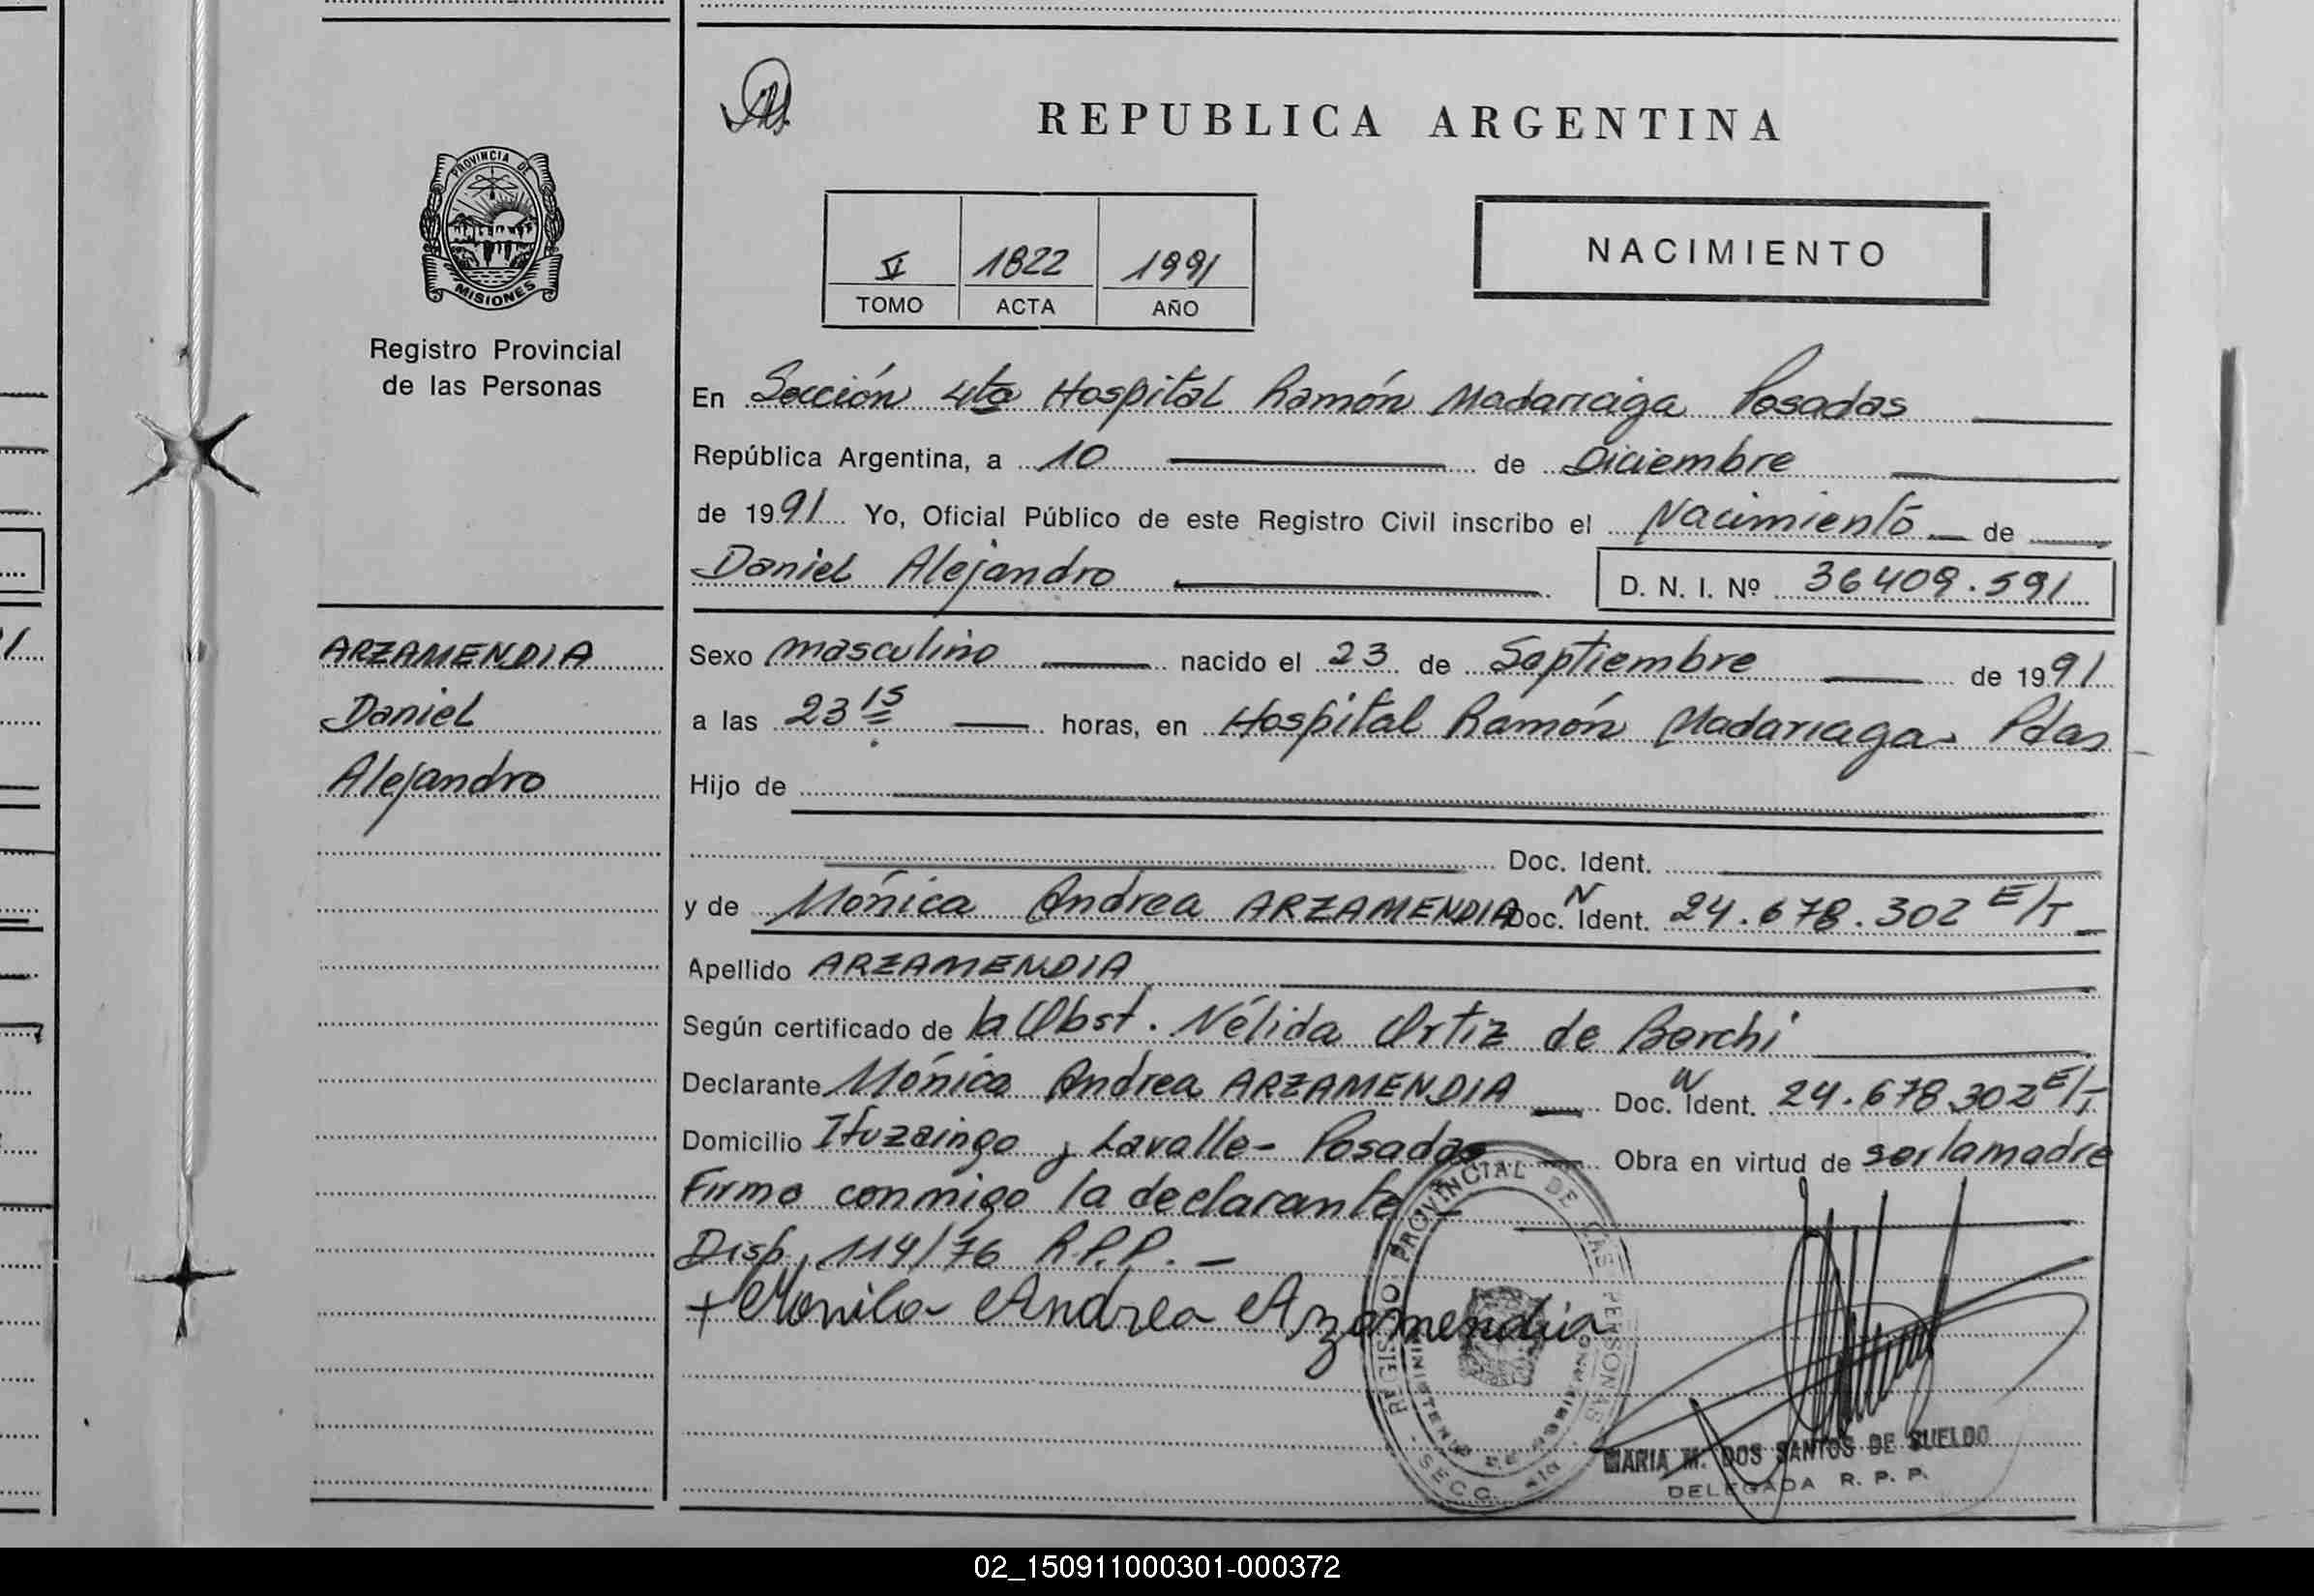 REPUBLICA ARGENTINA
PROVINCIA DE
MISIONES
Registro Provincial
de las Personas
V 1822 1991
TOMO ACTA AÑO
NACIMIENTO
En Sección 4ta Hospital Ramón Madariaga Posadas
República Argentina, a 10 de Diciembre
de 1991 Yo, Oficial Público de este Registro Civil inscribo el Nacimiento de
Daniel Alejandro D. N. I. Nº 36409.591
ARZAMENDIA
Daniel
Alejandro
Sexo masculino nacido el 23 de Septiembre de 1991
a las 23 15 horas, en Hospital Ramón Madariaga. Pdas
Hijo de
Doc. Ident.
y de Mónica Andrea ARZAMENDIA Doc. N Ident. 24.678.302 E/T
Apellido ARZAMENDIA
Según certificado de la Obst. Nélida Ortiz de Borchi
Declarante Mónica Andrea ARZAMENDIA Doc. N Ident. 24.678.302 E/T
Domicilio Ituzaingo y Lavalle - Posadas Obra en virtud de ser la madre
Firma conmigo la declarante -
Disp. 114/76 R.P.P. -
+ Monica Andrea Arzamendia
REGISTRO PROVINCIAL DE LAS PERSONAS
MINISTERIO DE GOBIERNO
SECC. 4ta
MARIA M. DOS SANTOS DE SUELDO
DELEGADA R. P. P.
02_150911000301-000372